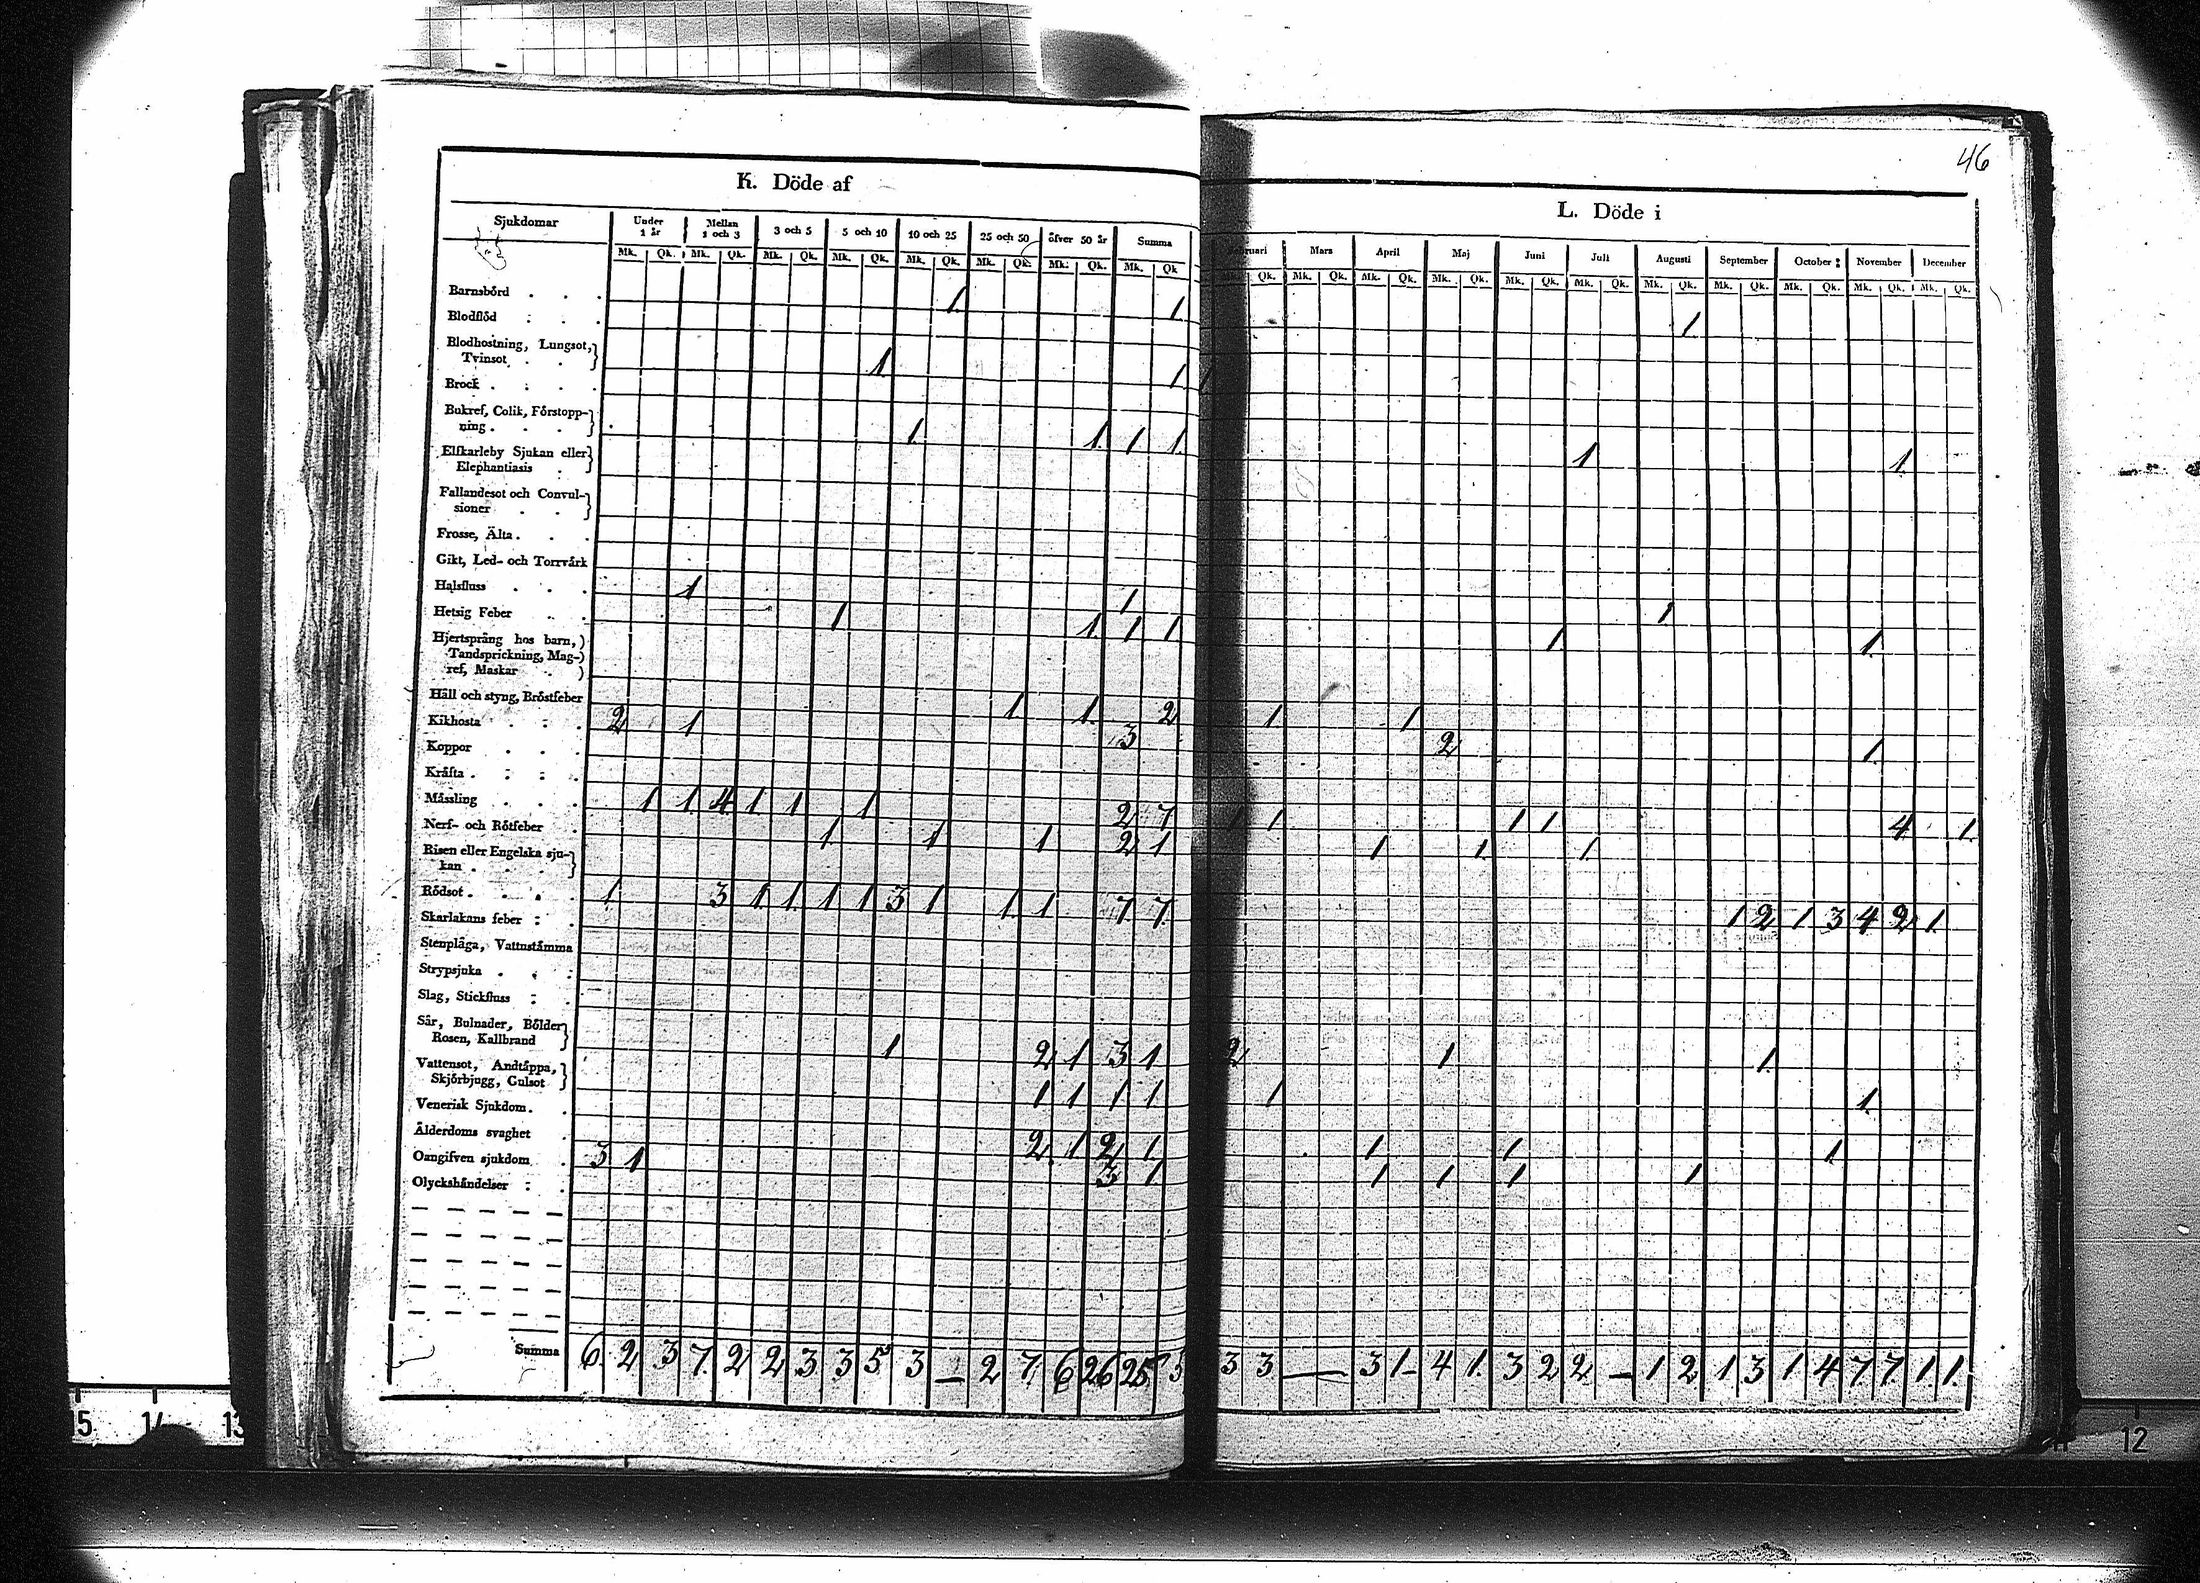 46
K. Döde af
L. Döde i
Sjukdomar Under 1 år Mellan 1 och 3 3 och 5 5 och 10 10 och 25 25 och 50 öfver 50 år Summa
Mk. Qk. Mk. Qk. Mk. Qk. Mk. Qk. Mk. Qk. Mk. Qk. Mk. Qk. Mk. Qk
Mars April Maj Junĭ Juli Augusti September October November December
Qk. Mk. Qk. Mk. Qk. Mk. Qk. Mk. Qk. Mk. Qk. Mk. Qk. Mk. Qk. Mk. Qk. Mk. Qk. Mk. Qk.
Barnsbörd 1 1 1
Blodflöd
Blodhostning, Lungsot,
Tvinsot 1 1
Brock
Bukref, Colik, Förstopp-
ning 1 1 1 1 1 1
Elfkarleby Sjukan eller
Elephantiasis
Fallandesot och Convul-
sioner
Frosse, Älta
Gikt, Led- och Torrvärk
Halsfluss 1 1 1
Hetsig Feber 1 1 1 1 1 1
Hjertsprång hos barn,
Tandsprickning, Mag-
ref, Maskar
Håll och styng, Bröstfeber 1 1 2 1 1
Kikhosta 2 1 3 2 1
Koppor
Kräfta
Mässling 1 1 4 1 1 1 2 7 1 1 1 1 4 1
Nerf- och Rötfeber 1 1 1 2 1 1 1 1
Risen eller Engelska sju-
kan
Rödsot 1 3 1 1 1 1 3 1 1 1 7 7 1 2 1 3 4 2 1
Skarlakans feber
Stenplåga, Vattnstämma
Strypsjuka
Slag, Stickfluss
Sår, Bulnader, Bölder
Rosen, Kallbrand 1 2 1 3 1 2 1 1
Vattensot, Andtäppa,
Skjörbjugg, Gulsot 1 1 1 1 1 1
Venerisk Sjukdom
Ålderdoms svaghet 2 1 2 1 1 1 1
Oangifven sjukdom 3 1 3 1 1 1 1 1
Olyckshändelser
Summa 6 2 3 7 2 2 3 3 5 3 — 2 7 6 26 25 3 3 — 3 1 4 1 3 2 2 — 1 2 1 3 1 4 7 7 1 1
15 14 13 12